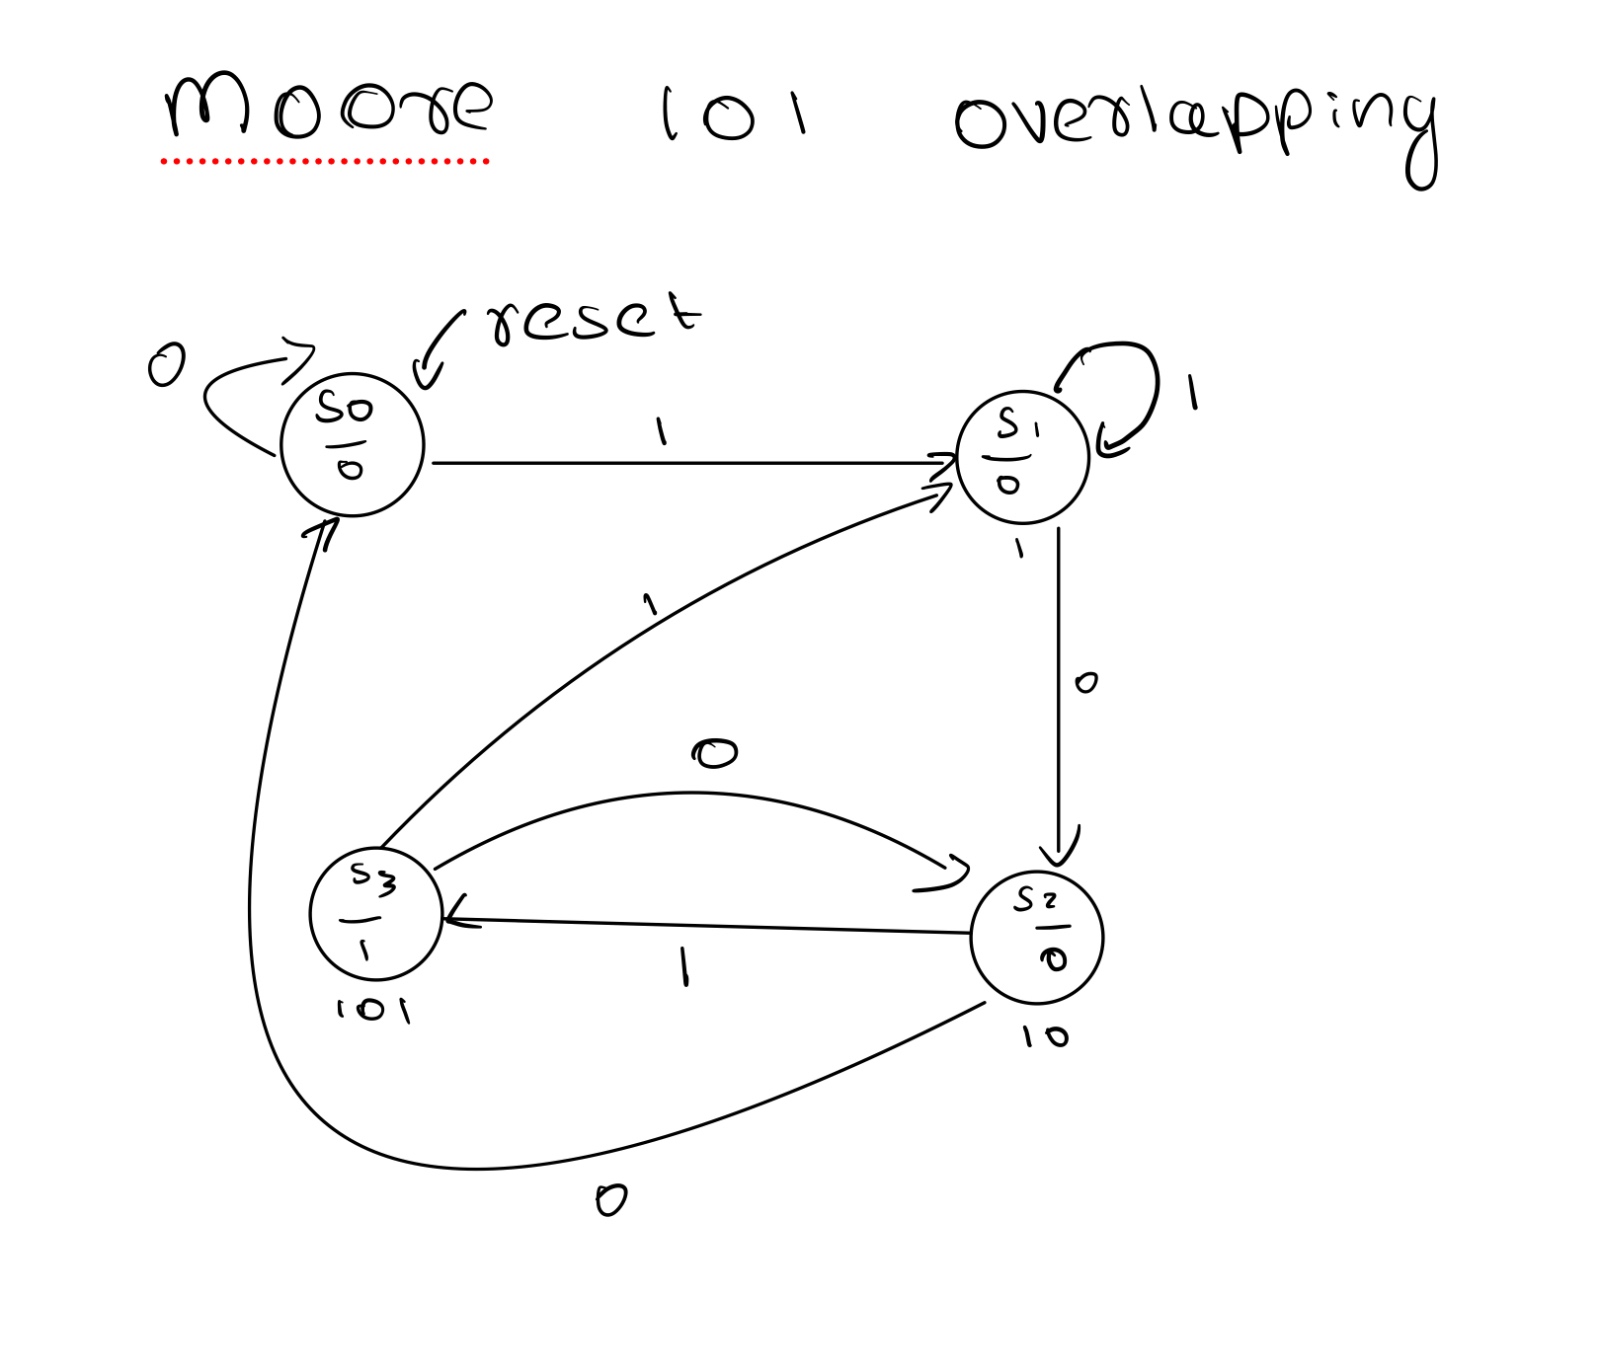 Moore 101 overlapping
reset
0
S0
0
1
S1
0
1
1
1
0
0
S3
1
101
1
S2
0
10
0